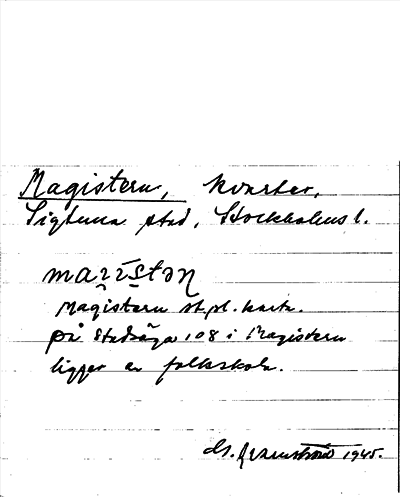 Magistern, kvarter,
Sigtuna stad, Stockholms l.
Magistern st.pl. karta.
på Stadsäga 108 i Magistern
ligger en folkskola.
1945.